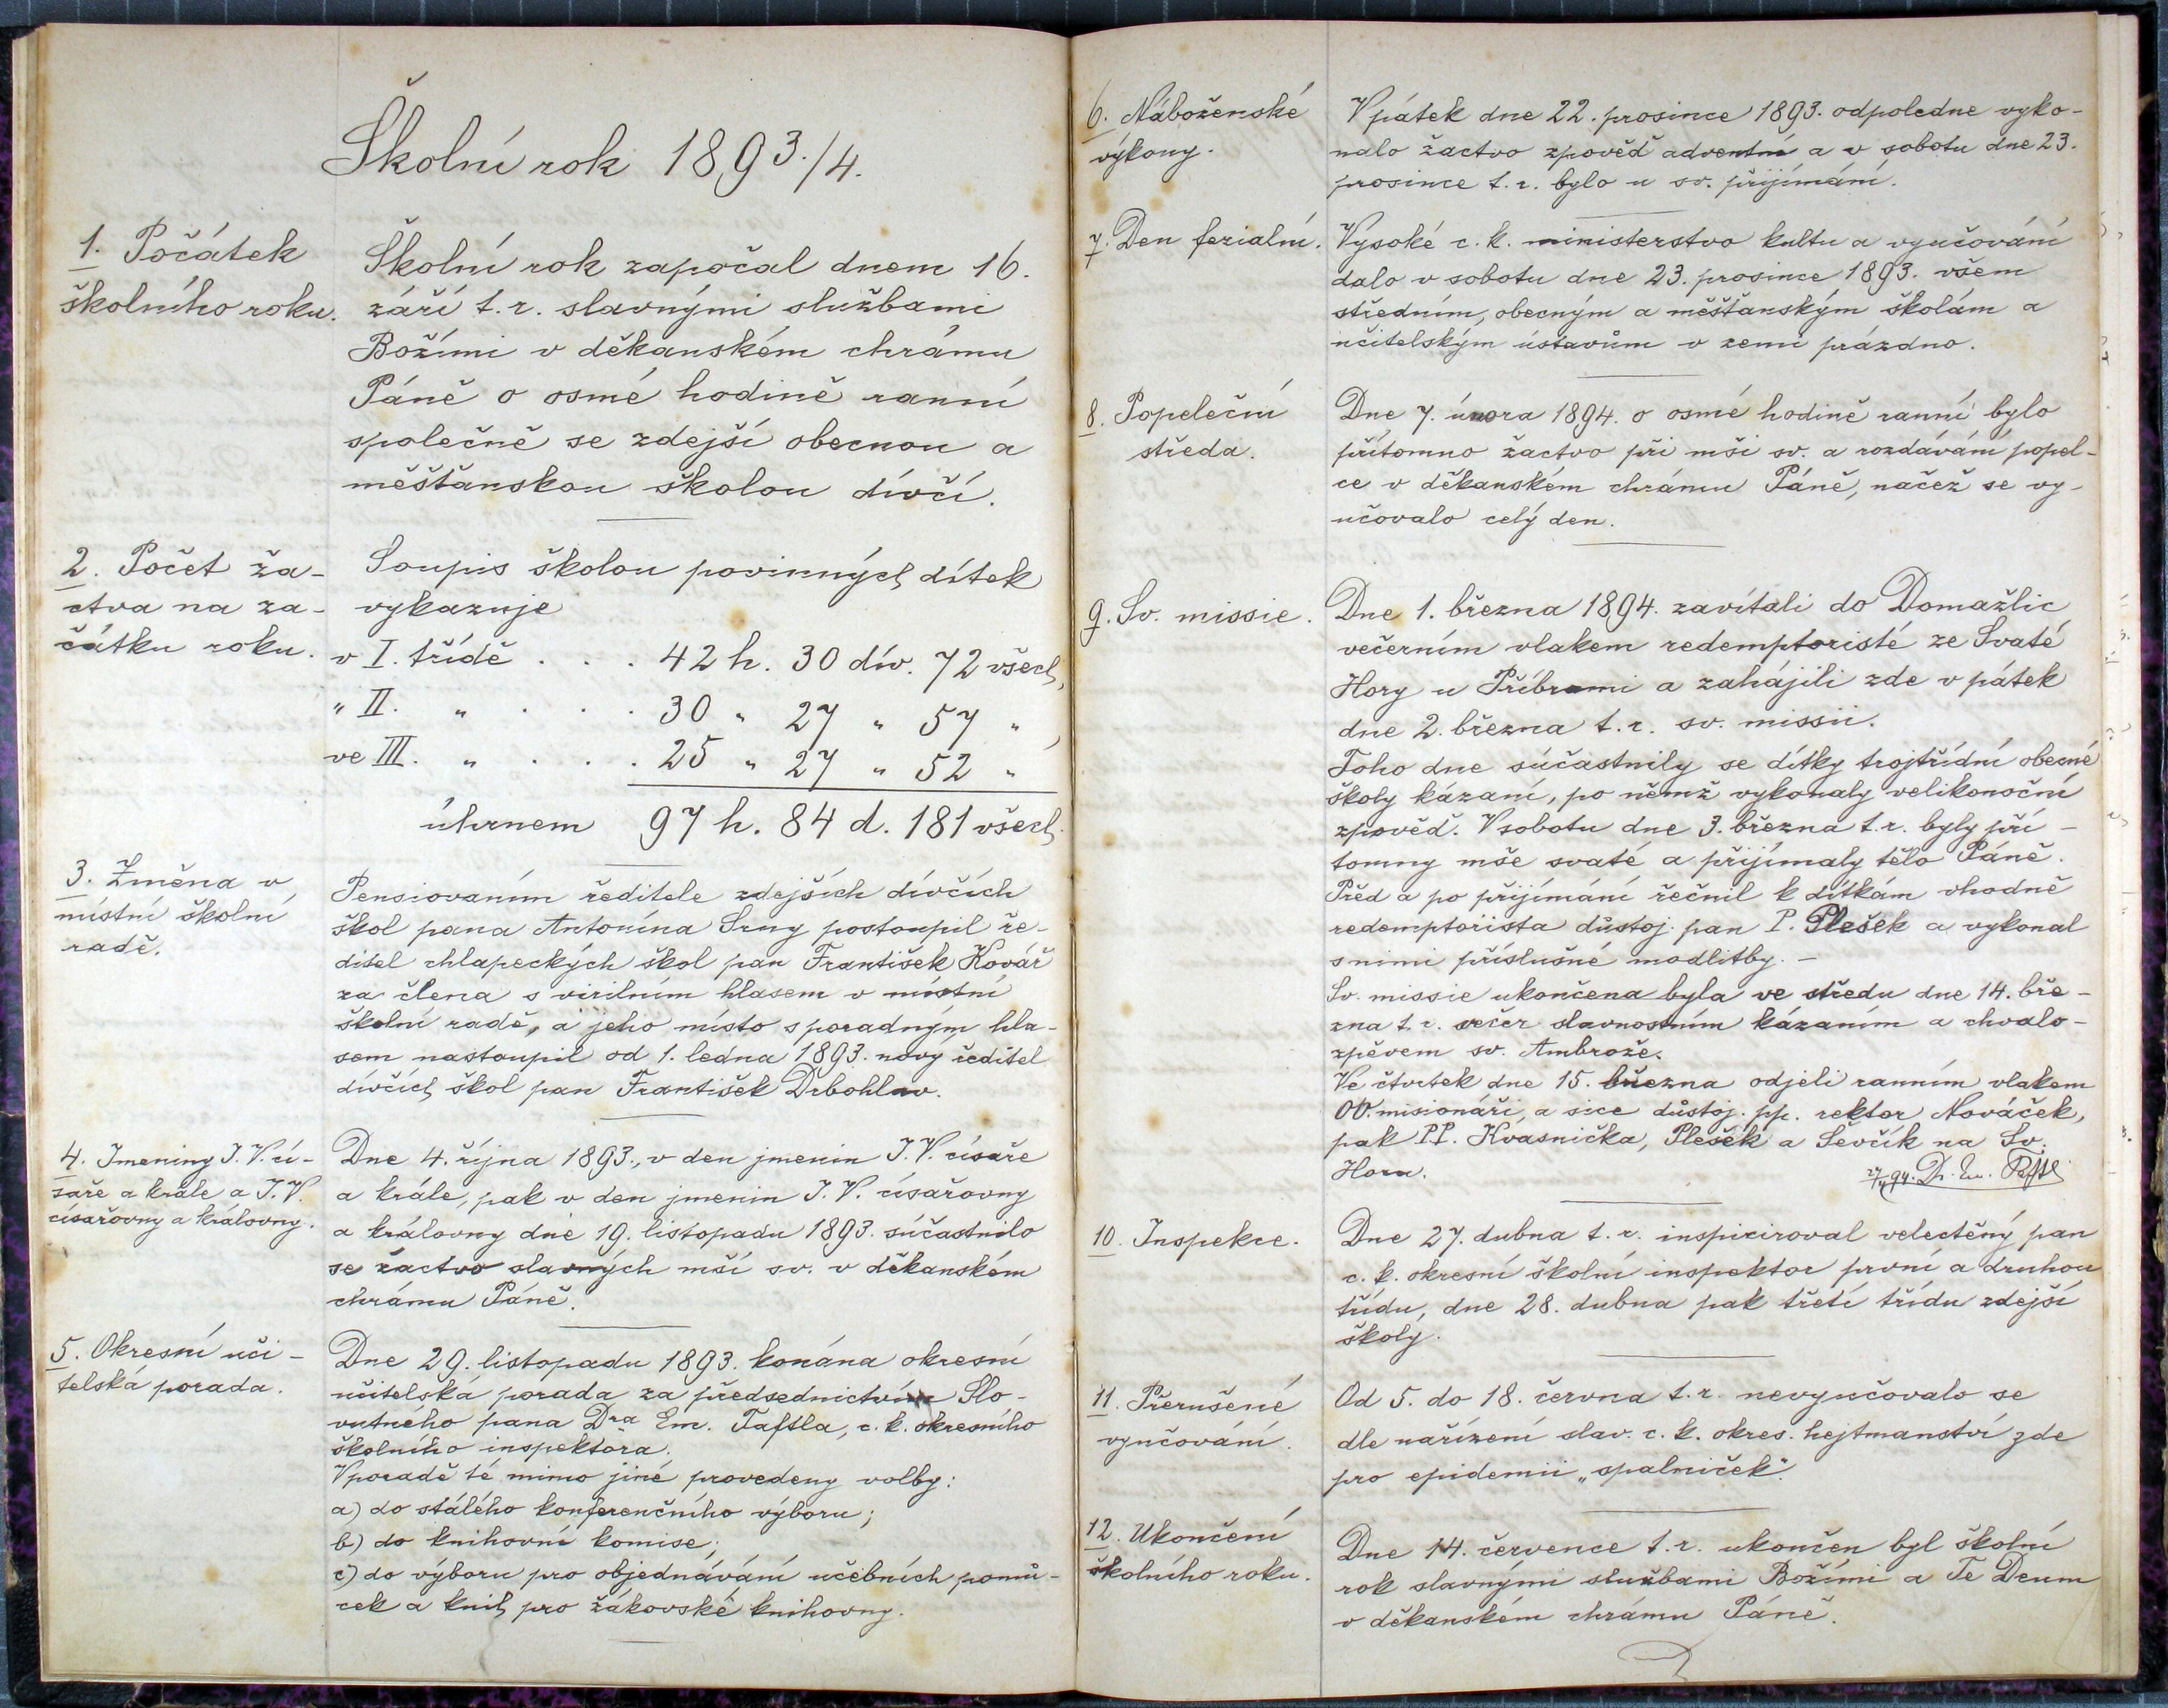 Školní rok 1893./4.
1. Počátek
školního roku.
Školní rok započal dnem 16.
září t. r. slavnými službami
Božími v děkanském chrámu
Páně o osmé hodině ranní
společně se zdejší obecnou a
měšťanskou školou dívčí.
2. Počet ža-
ctva na za-
čátku roku.
Soupis školou povinných dítek
vykazuje
v I. třídě . . . 42 h. 30 dív. 72 všech,
" II. " . . . 30 " 27 " 57 " ,
ve III. " . . . 25 " 27 " 52 "
úhrnem 97 h. 84 d. 181 všech.
3. Změna v
místní školní
radě.
Pensiovaním ředitele zdejších dívčích
škol pana Antonína Srny postoupil ře-
ditel chlapeckých škol pan František Kovář
za člena s virilním hlasem v místní
školní radě, a jeho místo s poradným hla-
sem nastoupil od 1. ledna 1893. nový ředitel
dívčích škol pan František Drbohlav.
4. Jmeniny J. V. cí-
saře a krále a J. V.
císařovny a královny.
Dne 4. října 1893., v den jmenin J. V. císaře
a krále, pak v den jmenin J. V. císařovny
a královny dne 19. listopadu 1893. súčastnilo
se žactvo slavných mší sv. v děkanském
chrámu Páně.
5. Okresní uči-
telská porada.
Dne 29. listopadu 1893. konána okresní
učitelská porada za předsednictví Slo-
vutného pana Dra Em. Taftla, c. k. okresního
školního inspektora.
V poradě té mimo jiné provedeny volby:
a) do stálého konferenčního výboru;
b) do knihovní komise;
c) do výboru pro objednávání učebních pomů-
cek a knih pro žákovské knihovny.
6. Náboženské
výkony.
V pátek dne 22. prosince 1893. odpoledne vyko-
nalo žactvo zpověď adventní a v sobotu dne 23.
prosince t. r. bylo u sv. přijímání.
7. Den ferialní.
Vysoké c. k. ministerstvo kultu a vyučování
dalo v sobotu dne 23. prosince 1893. všem
středním, obecným a měšťanským školám a
učitelským ústavům v zemi prázdno.
8. Popeleční
středa.
Dne 7. února 1894. o osmé hodině ranní bylo
přítomno žactvo při mši sv. a rozdávání popel-
ce v děkanském chrámu Páně, načež se vy-
učovalo celý den.
9. Sv. missie.
Dne 1. března 1894. zavítali do Domažlic
večerním vlakem redemptoristé ze Svaté
Hory u Příbrami a zahájili zde v pátek
dne 2. března t. r. sv. missii.
Toho dne súčastnily se dítky trojtřídní obecné
školy kázaní, po němž vykonaly velikonoční
zpověď. V sobotu dne 3. března t. r. byly pří-
tomny mše svaté a přijímaly tělo Páně.
Před a po přijímání řečnil k dítkám vhodně
redemptorista důstoj. pan P. Plešek a vykonal
s nimi příslušné modlitby. -
Sv. missie ukončena byla ve středu dne 14. bře-
zna t. r. večer slavnostním kázaním a chvalo-
zpěvem sv. Ambrože.
Ve čtvrtek dne 15. března odjeli ranním vlakem
OO. misionáři, a sice důstoj. pp. rektor Nováček,
pak P.P. Kvasnička, Plešek a Ševčík na Sv.
Horu.
27/4 94. Dr. Em. Taftl
10. Inspekce.
Dne 27. dubna t. r. inspiciroval velectěný pan
c. k. okresní školní inspektor první a druhou
třídu, dne 28. dubna pak třetí třídu zdejší
školy.
11. Přerušené
vyučování.
Od 5. do 18. června t. r. nevyučovalo se
dle nařízení slav. c. k. okres. hejtmanství zde
pro epidemii „spalniček".
12. Ukončení
školního roku.
Dne 14. července t. r. ukončen byl školní
rok slavnými službami Božími a Te Deum
v děkanském chrámu Páně.